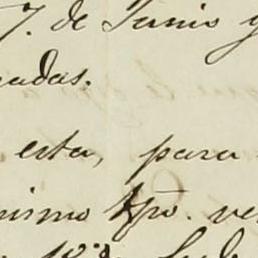 7. de Junio y
adas.
esta, para
nismo tpo. ve